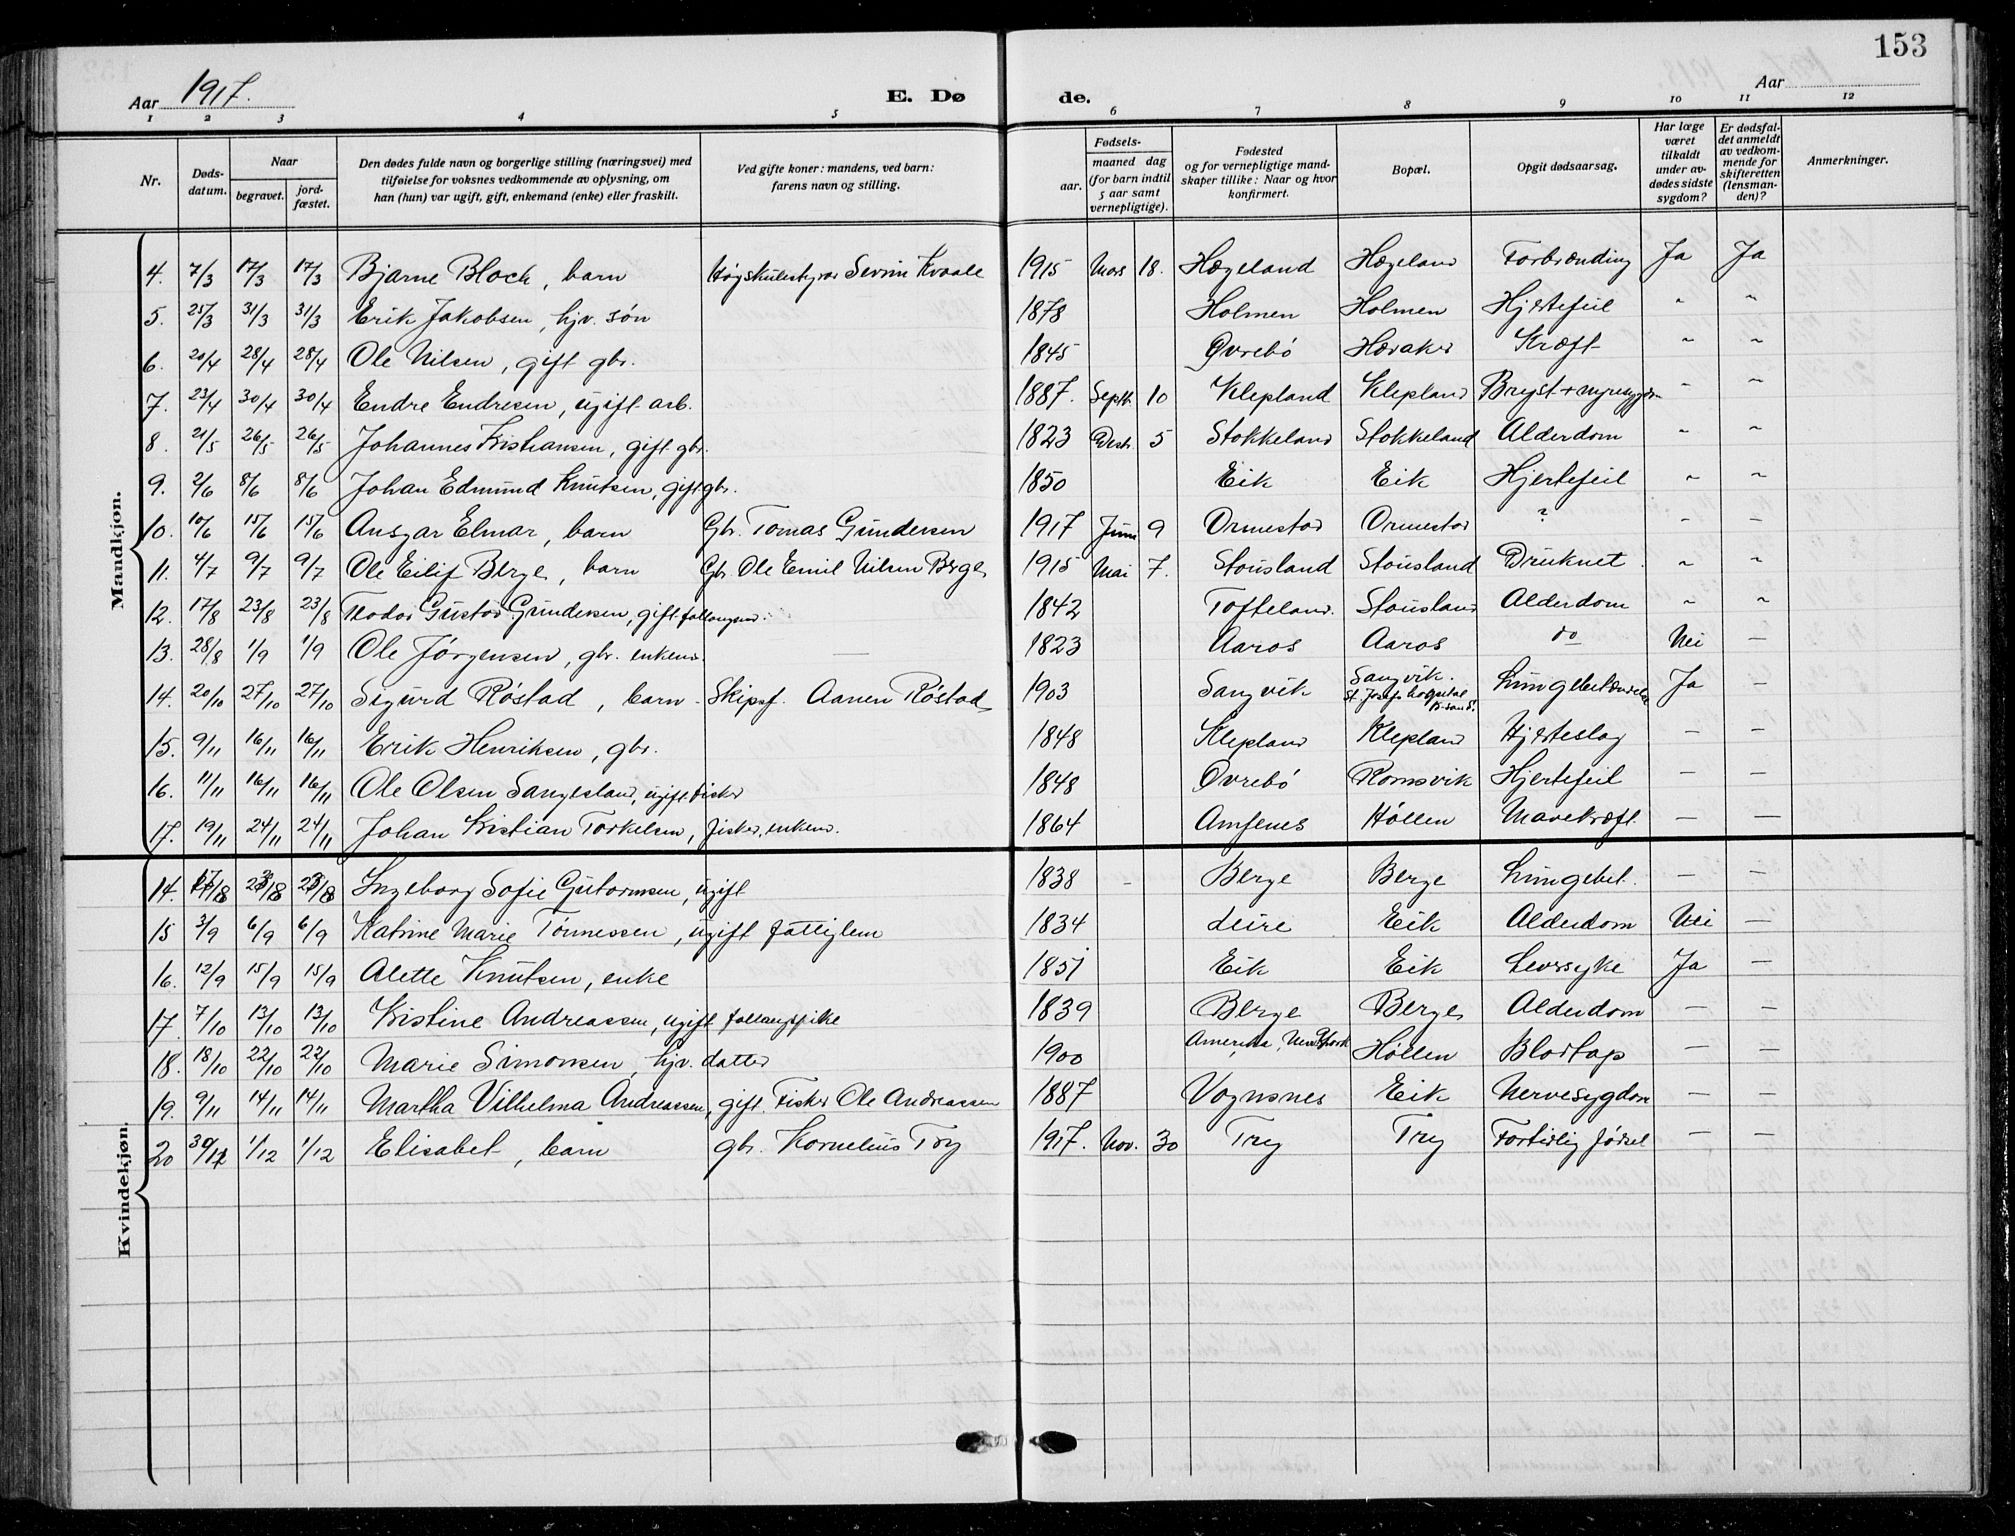 153
Aar 1917.
E. Døde.
Aar
1 2 3 4 5 6 7 8 9 10 11 12
Nr.
Døds-datum.
Naar
begravet.
jord-fæstet.
Den dødes fulde navn og borgerlige stilling (næringsvei) med tilføielse for voksnes vedkommende av oplysning, om han (hun) var ugift, gift, enkemand (enke) eller fraskilt.
Ved gifte koner: mandens, ved barn: farens navn og stilling.
Fødsels-
aar.
maaned dag (for barn indtil 5 aar samt vernepligtige).
Fødested og for vernepligtige mandskaper tillike: Naar og hvor konfirmert.
Bopæl.
Opgit dødsaarsag.
Har læge været tilkaldt under avdødes sidste sygdom?
Er dødsfaldet anmeldt av vedkommende for skifteretten (lensmanden)?
Anmerkninger.
Mandkjøn.
4. 7/3 17/3 17/3 Bjarne Bloch, barn Høgskulestyrar Severin Kvaale 1915 Mars 18. Hægeland Hægeland Forbrænding Ja Ja
5. 25/3 31/3 31/3 Erik Jakobsen, hjv. søn 1878 Holmen Holmen Hjertefeil " "
6. 20/4 28/4 28/4 Ole Nilsen, gift gbr. 1845 Øvrebö Høraker Kræft " "
7. 23/4 30/4 30/4 Endre Endresen, ugift arb. 1887. Septb. 10 Klepland Klepland Bryst + nyresygdom " "
8. 21/5 26/5 26/5 Johannes Kristiansen, gift gbr. 1823 Desbr. 5 Stokkeland Stokkeland Alderdom " "
9. 2/6 8/6 8/6 Johan Edmund Knutsen, gift gbr. 1850 Eik Eik Hjertefeil " "
10. 10/6 15/6 15/6 Ansgar Elmar, barn Gbr. Tomas Gundersen 1917 Juni 9 Ormestad Ormestad ? – –
11. 4/7 9/7 9/7 Ole Eilif Berge, barn Gbr. Ole Emil Nilsen Berge 1915 Mai 7. Stousland Stousland Druknet. " "
12. 17/8 23/8 23/8 Teodor Gustav Gundersen, gift 1842 Tofteland. Stousland Alderdom " "
13. 28/8 1/9 1/9 Ole Jørgensen, gbr. enkem. — 1823 Aaros Aaros do Nei –
14. 20/10 27/10 27/10 Sigurd Röstad, barn - Skipsf. Aanen Röstad 1903 Sangvik Sangvik. St. Josefs hospital K-sand. Lungebetændelse Ja –
15. 9/11 16/11 16/11 Erik Henriksen, gbr. 1848 Klepland Klepland Hjerteslag – –
16. 11/11 16/11 16/11 Ole Olsen Sangesland, ugift fisker 1848 Øvrebö Romsvik Hjertefeil – –
17. 19/11 24/11 24/11 Johan Kristian Torkelsen, fisker, enkem. 1864 Amfenes Höllen Mavekræft – –
Kvindekjøn.
14. 17/8 23/8 23/8 Ingeborg Sofie Gutormsen, ugift 1838 – Berge Berge Lungebet. – –
15 3/9 6/9 6/9 Katrine Marie Tönnessen, ugift fattiglem 1834 Leire Eik Alderdom Nei –
16. 12/9 15/9 15/9 Alette Knutsen, enke 1851 Eik Eik Leversyke Ja –
17. 7/10 13/10 13/10 Kristine Andreassen, ugift 1839 Berge Berge Alderdom – –
18. 18/10 22/10 22/10 Marie Simonsen, hjv. datter 1900 Amerika, New York Höllen Blodtap – –
19. 9/11 14/11 14/11 Martha Vilhelma Andreassen, gift. Fisker Ole Andreassen 1887 Vognsnes Eik Nervesygdom – –
20 30/11 1/12 1/12 Elisabet, barn gbr. Kornelius Try 1917. Nov. 30 Try Try Fortidlig fødsel – –